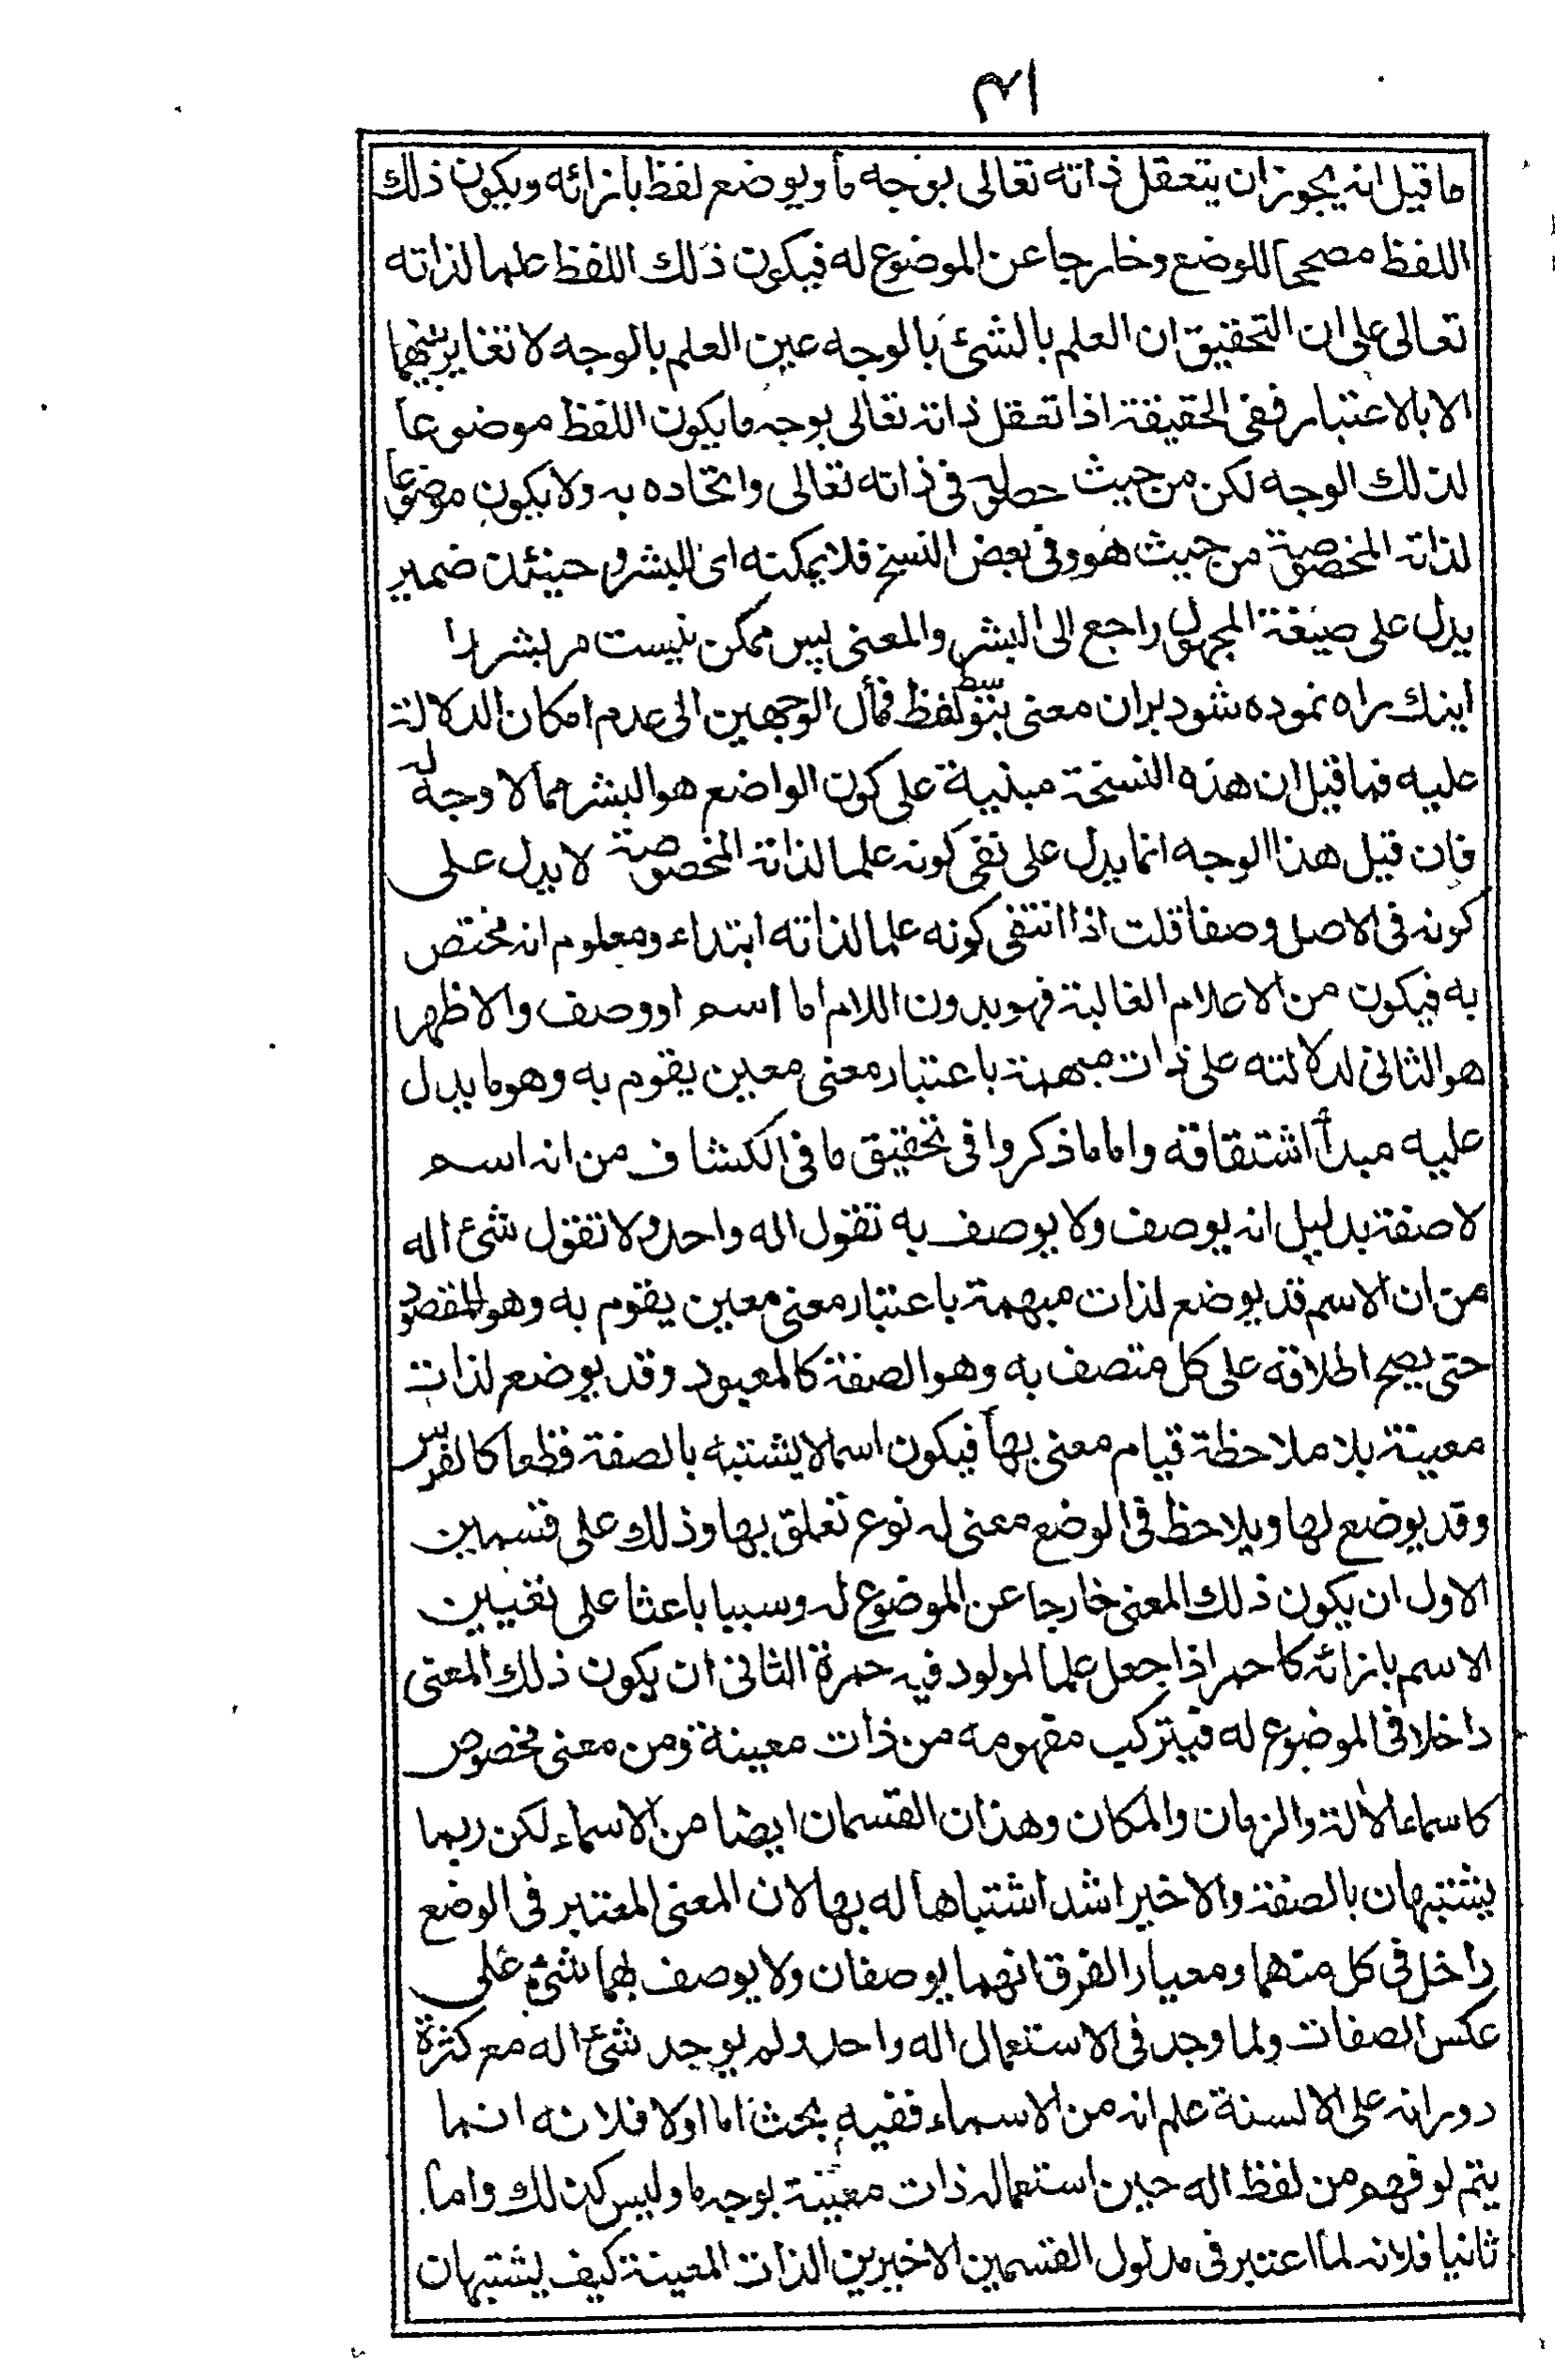 ٣١
ما قيل انه يجوز ان يتعقل ذاته تعالى بوجه ما ويوضع لفظ بازائه ويكون ذلك
اللفظ مصححا للوضع وخارجا عن الموضوع له فيكون ذلك اللفظ علما لذاته
تعالى على ان التحقيق ان العلم بالشئ بالوجه عين العلم بالوجه لا تغاير بينهما
الا بالاعتبار ففى الحقيقة اذا تعقل ذاته تعالى بوجه ما يكون اللفظ موضوعا
لذلك الوجه لكن من حيث حصوله فى ذاته تعالى واتحاده به ولا يكون موضوعا
لذاته المخصوصة من حيث هو وفى بعض النسخ فلا يمكنه اى للبشر وحينئذ ضمير
يدل على صيغة المجهول راجع الى البشر والمعنى پس ممكن نيست مر بشر را
اينك راه نموده شود بران معنى بتوسط لفظ فمأل الوجهين الى عدم امكان الدلالة
عليه فما قيل ان هذه النسخة مبنية على كون الواضع هو البشر مما لا وجه له
فان قيل هذا الوجه انما يدل على نفى كونه علما لذاته المخصوصة لا يدل على
كونه فى الاصل وصفا قلت اذا انتفى كونه علما لذاته ابتداء ومعلوم انه مختص
به فيكون من الاعلام الغالبة فهو بدون اللام اما اسم او وصف والاظهر
هو الثانى لدلالته على ذات مبهمة باعتبار معنى معين يقوم به وهو ما يدل
عليه مبدأ اشتقاقه واما ما ذكروا فى تحقيق ما فى الكشاف من انه اسم
لا صفة بدليل انه يوصف ولا يوصف به تقول اله واحد ولا تقول شئ اله
من ان الاسم قد يوضع لذات مبهمة باعتبار معنى معين يقوم به وهو المقصود
حتى يصح اطلاقه على كل متصف به وهو الصفة كالمعبود وقد يوضع لذات
معينة بلا ملاحظة قيام معنى بها فيكون اسما لا يشتبه بالصفة قطعا كالفرس
وقد يوضع لها ويلاحظ فى الوضع معنى له نوع تعلق بها وذلك على قسمين
الاول ان يكون ذلك المعنى خارجا عن الموضوع له وسببا باعثا على تعيين
الاسم بازائه كاحمر اذا جعل علما لمولود فيه حمرة الثانى ان يكون ذلك المعنى
داخلا فى الموضوع له فيتركب مفهومه من ذات معينة ومن معنى مخصوص
كاسماء الالة والزمان والمكان وهذان القسمان ايضا من الاسماء لكن ربما
يشتبهان بالصفة والاخير اشد اشتباها له بها لان المعنى المعتبر فى الوضع
داخل فى كل منهما ومعيار الفرق انهما يوصفان ولا يوصف بهما شئ على
عكس الصفات ولما وجد فى الاستعمال اله واحد ولم يوجد شئ اله مع كثرة
دورانه على الالسنة علم انه من الاسماء ففيه بحث اما اولا فلانه انما
يتم لو فهم من لفظ اله حين استعماله ذات معينة بوجه ما وليس كذلك واما
ثانيا فلانه لما اعتبر فى مدلول القسمين الاخيرين الذات المعينة كيف يشتبهان